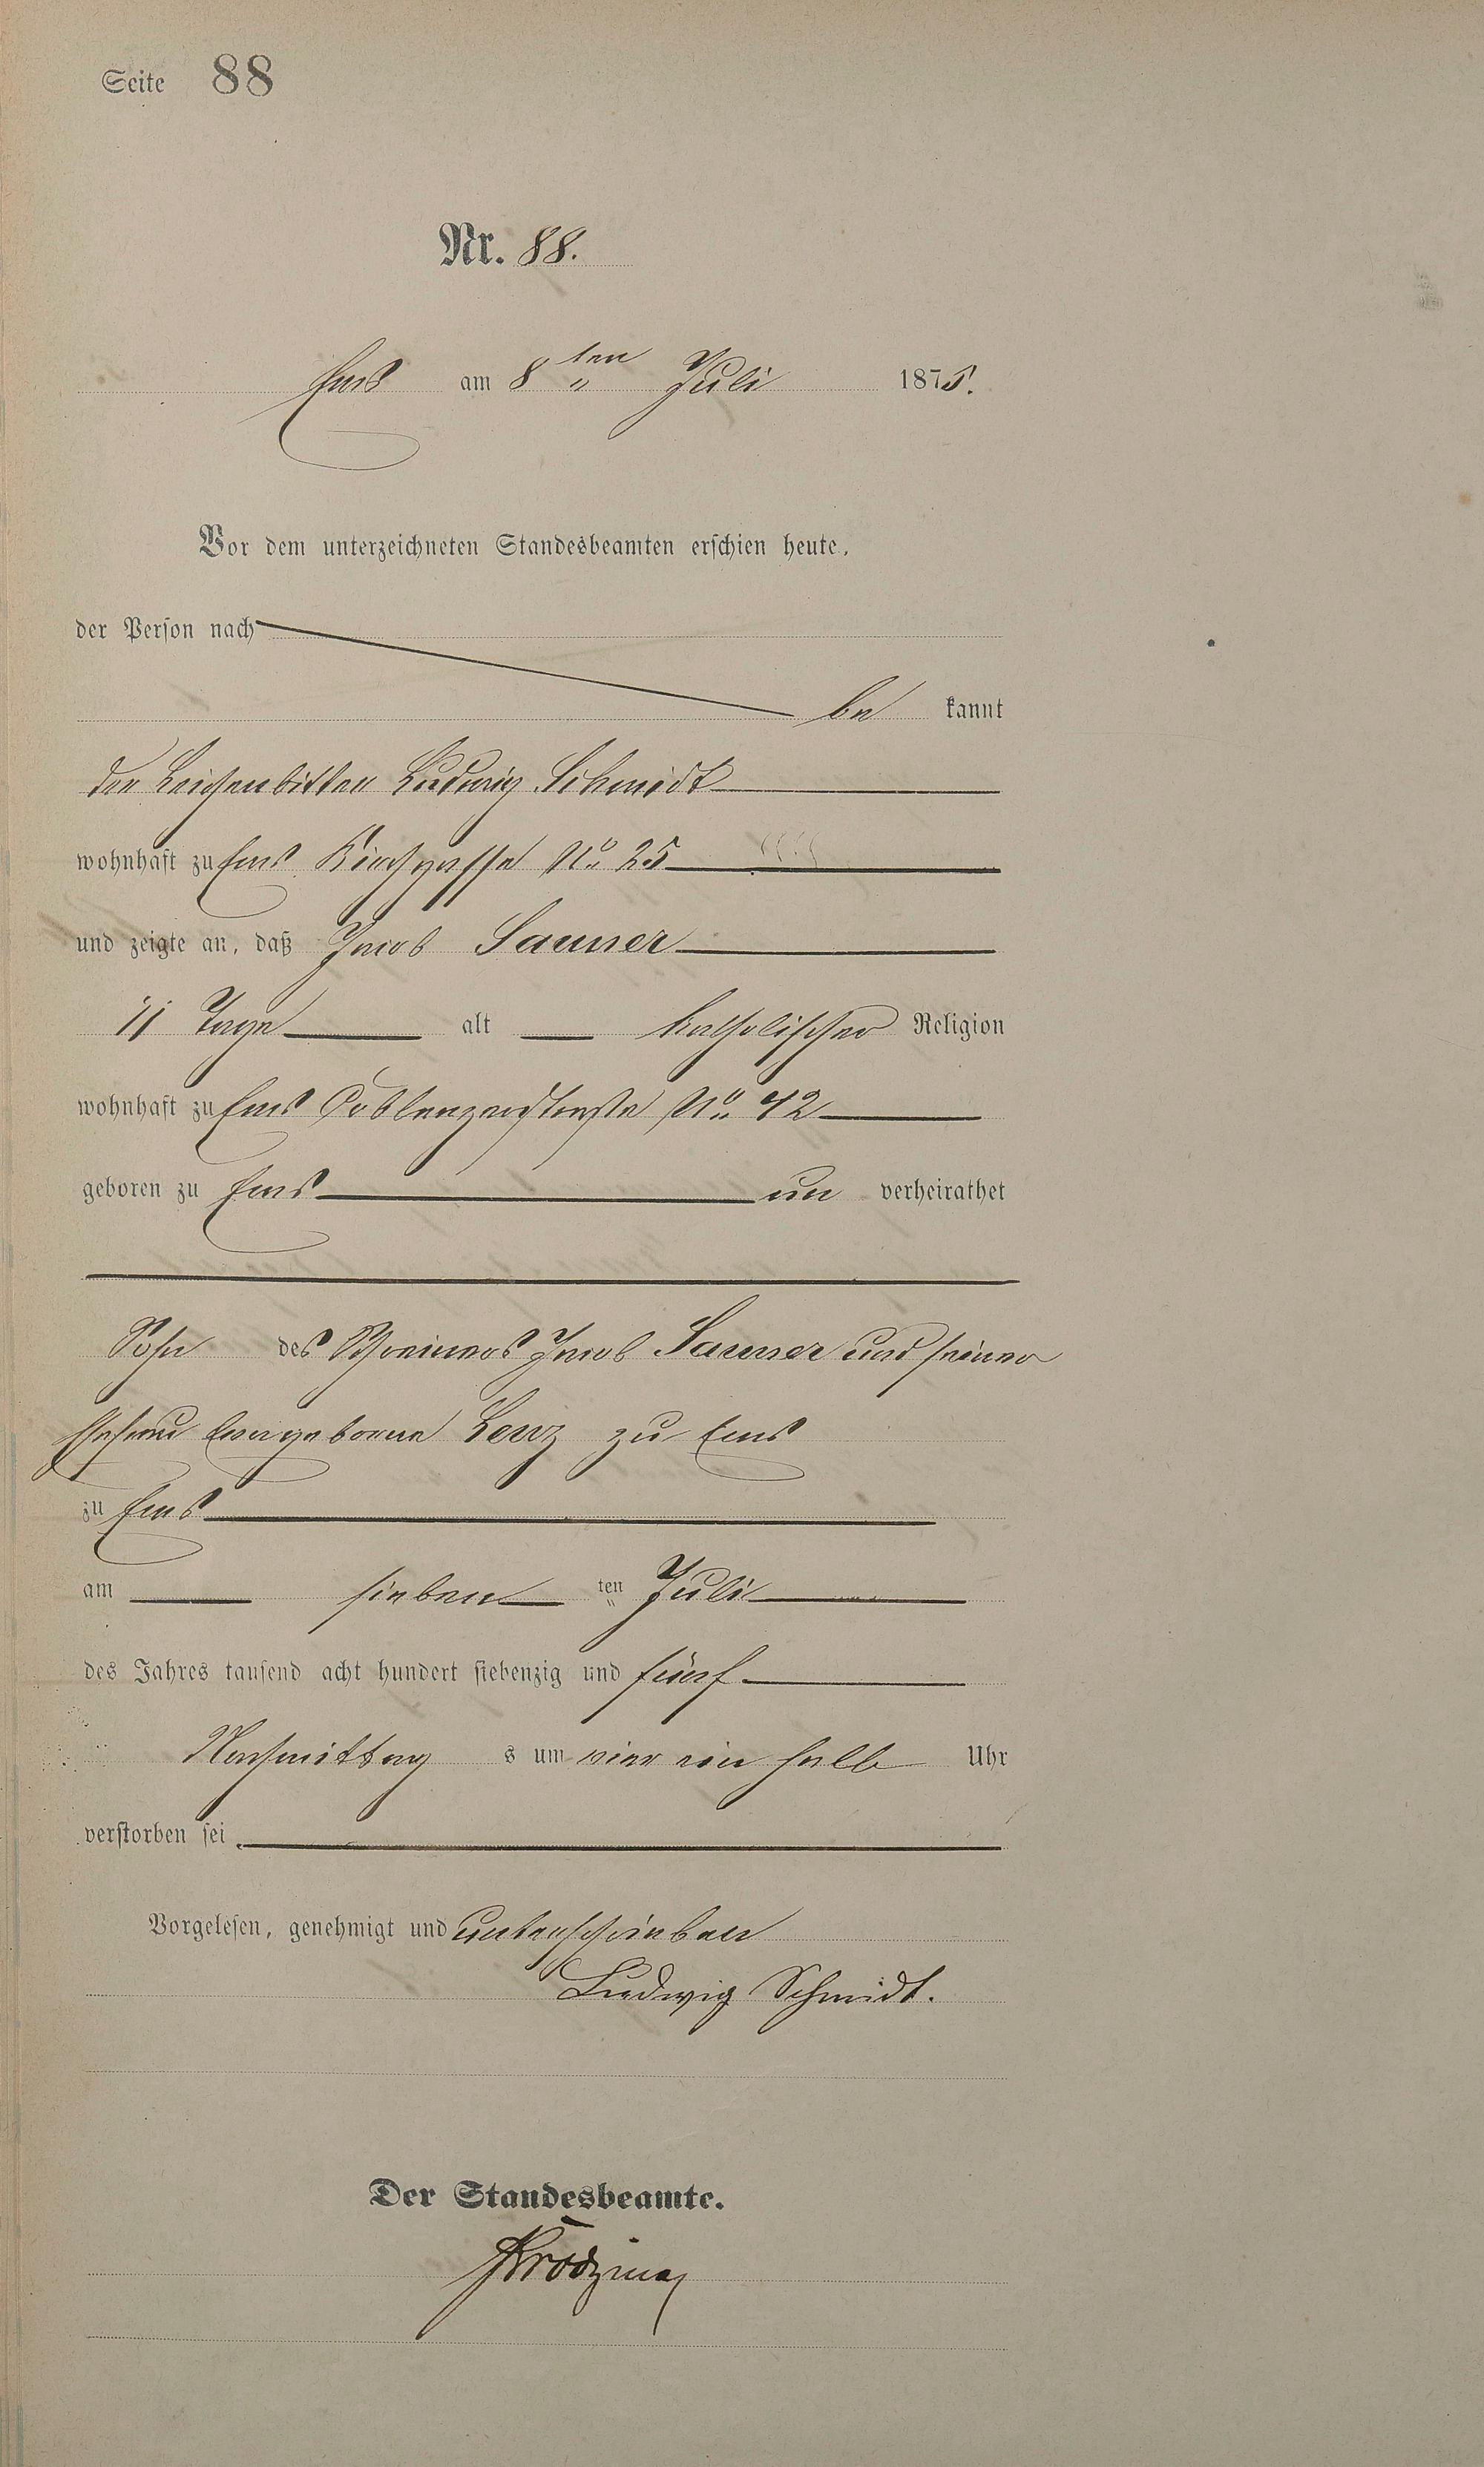 Seite 88
Nr. 88.
Ems am 8ten Juli 1875.
Vor dem unterzeichneten Standesbeamten erschien heute,
der Person nach
be kannt
der Leichenbitter Ludwig Schmidt
wohnhaft zu Ems Kirchgasse No 25
und zeigte an, daß Jacob Sauner
11 Tage alt katholischer Religion
wohnhaft zu Ems Coblenzerstraße No 42
geboren zu Ems un verheirathet
Sohn des Schreiners Jacob Sauner und seiner
Ehefrau geborene Lenz zu Ems
zu Ems
am sieben ten Juli
des Jahres tausend acht hundert siebenzig und fünf
Nachmittag s um vier ein halb Uhr
verstorben sei.
Vorgelesen, genehmigt und unterschrieben
Ludwig Schmidt.
Der Standesbeamte.